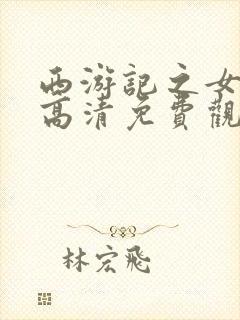 西游記之女
高清免費觀
林宏飛